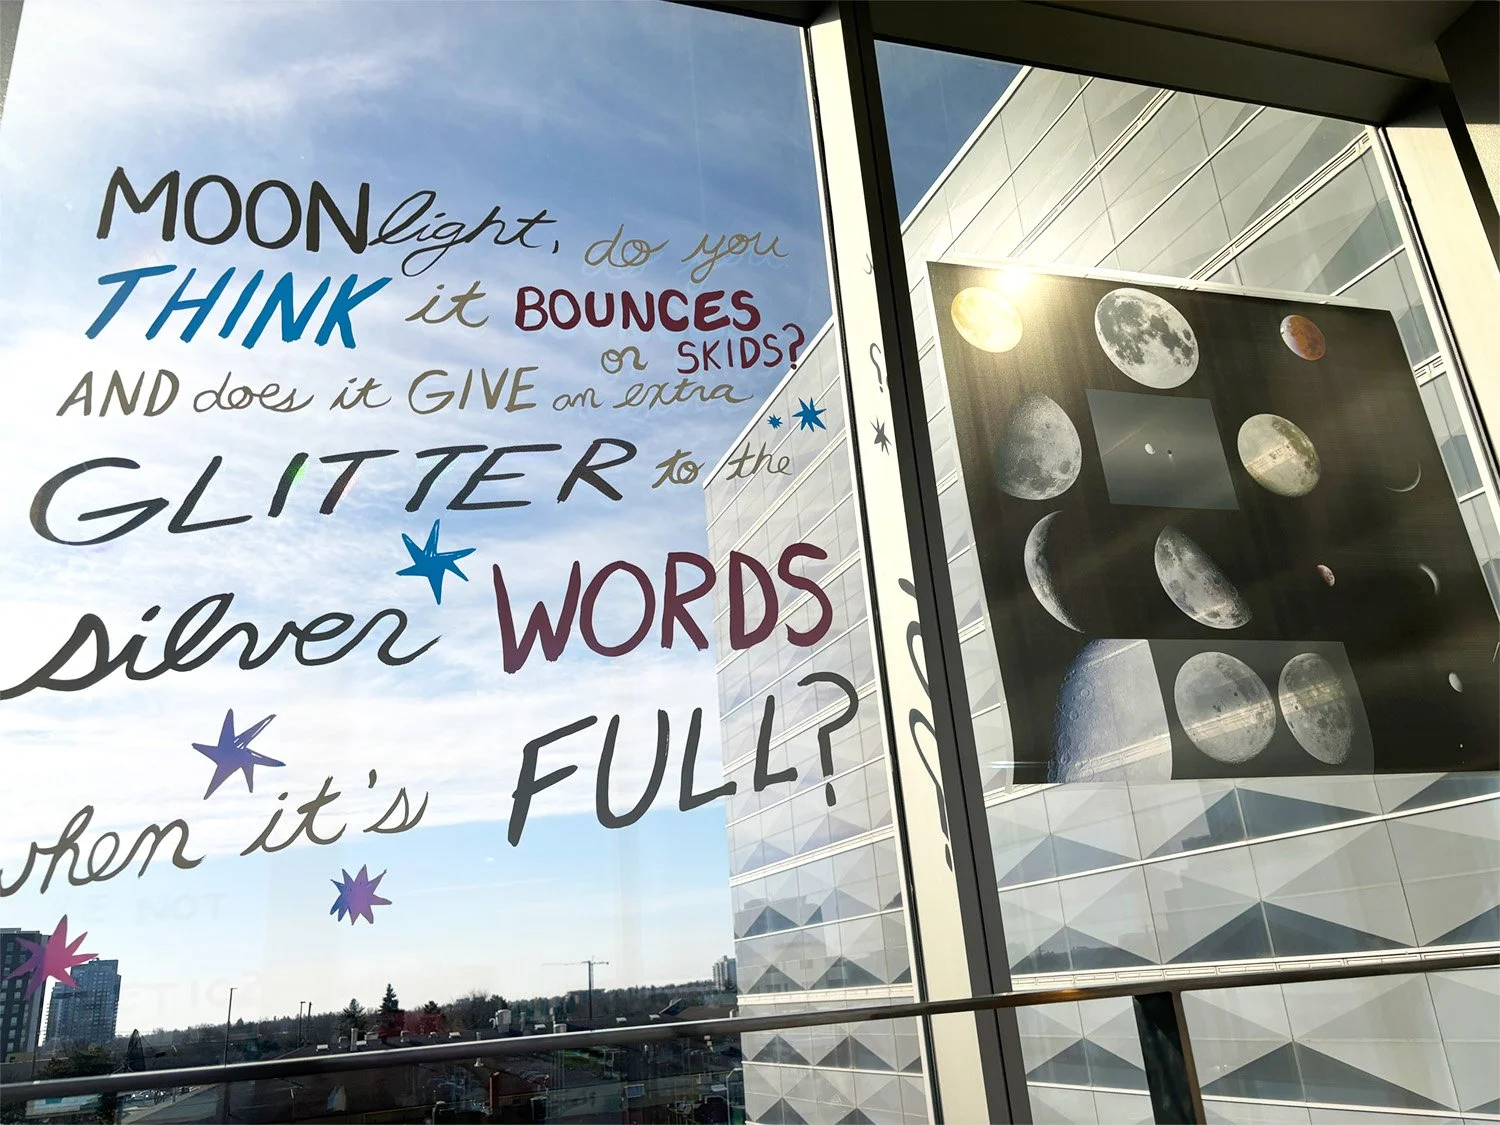 MOONlight, do you
THINK it BOUNCES
or SKIDS?
AND does it GIVE an extra
GLITTER to the
silver WORDS
when it's FULL?